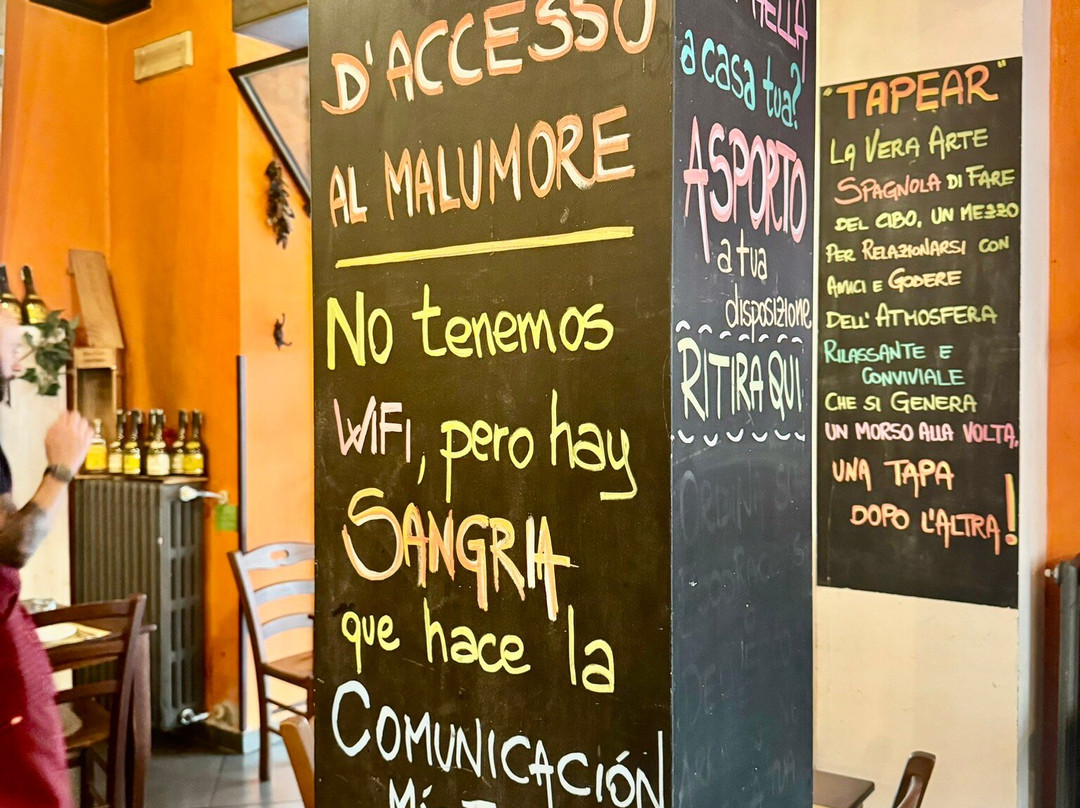 D'ACCESSO
AL MALUMORE
No tenemos
WIFI, pero hay
SANGRIA
que hace la
COMUNICACIÓN
a casa tua?
ASPORTO
a tua
disposizione
RITIRA QUI
"TAPEAR"
LA VERA ARTE
SPAGNOLA DI FARE
DEL CIBO, UN MEZZO
PER RELAZIONARSI CON
AMICI E GODERE
DELL'ATMOSFERA
RILASSANTE E
CONVIVIALE
CHE SI GENERA
UN MORSO ALLA VOLTA,
UNA TAPA
DOPO L'ALTRA!